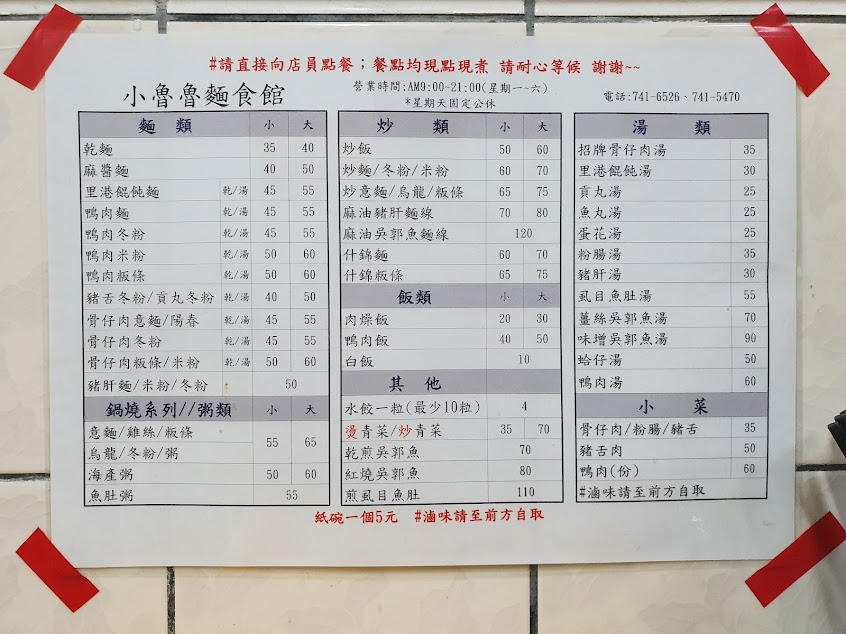 #請直接向店員點餐；餐點均現點現煮 請耐心等候 謝謝~~
小魯魯麵食館
營業時間:AM9:00-21:00(星期一~六)
*星期天固定公休
電話:741-6526、741-5470
麵 類 小 大
乾麵 35 40
麻醬麵 40 50
里港餛飩麵 乾/湯 45 55
鴨肉麵 乾/湯 45 55
鴨肉冬粉 乾/湯 45 55
鴨肉米粉 乾/湯 50 60
鴨肉粄條 乾/湯 50 60
豬舌冬粉/貢丸冬粉 乾/湯 40 50
骨仔肉意麵/陽春 乾/湯 45 55
骨仔肉冬粉 乾/湯 45 55
骨仔肉粄條/米粉 乾/湯 50 60
豬肝麵/米粉/冬粉 50
鍋燒系列//粥類 小 大
意麵/雞絲/粄條
烏龍/冬粉/粥
55 65
海產粥 50 60
魚肚粥 55
炒 類 小 大
炒飯 50 60
炒麵/冬粉/米粉 60 70
炒意麵/烏龍/粄條 65 75
麻油豬肝麵線 70 80
麻油吳郭魚麵線 120
什錦麵 60 70
什錦粄條 65 75
飯類 小 大
肉燥飯 20 30
鴨肉飯 40 50
白飯 10
其 他
水餃一粒(最少10粒) 4
燙青菜/炒青菜 35 70
乾煎吳郭魚 70
紅燒吳郭魚 80
煎虱目魚肚 110
湯 類
招牌骨仔肉湯 35
里港餛飩湯 30
貢丸湯 25
魚丸湯 25
蛋花湯 25
粉腸湯 35
豬肝湯 30
虱目魚肚湯 55
薑絲吳郭魚湯 70
味增吳郭魚湯 90
蛤仔湯 50
鴨肉湯 60
小 菜
骨仔肉/粉腸/豬舌 35
豬舌肉 50
鴨肉(份) 60
#滷味請至前方自取
紙碗一個5元 #滷味請至前方自取